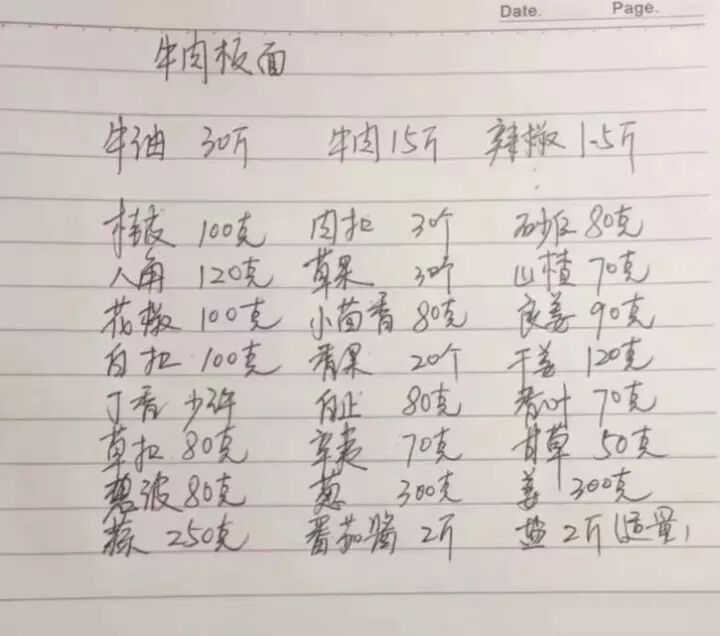 Date. Page.
牛肉板面
牛油 30斤 牛肉 15斤 辣椒 1.5斤
桂皮 100克 肉扣 30个 石沙仁 80克
八角 120克 草果 30个 山楂 70克
花椒 100克 小茴香 80克 良姜 90克
白扣 100克 香果 20个 干姜 120克
丁香 少许 白止 80克 香叶 70克
草扣 80克 辛夷 70克 甘草 50克
荜波 80克 葱 300克 姜 300克
蒜 250克 番茄酱 2斤 盐 2斤(适量)